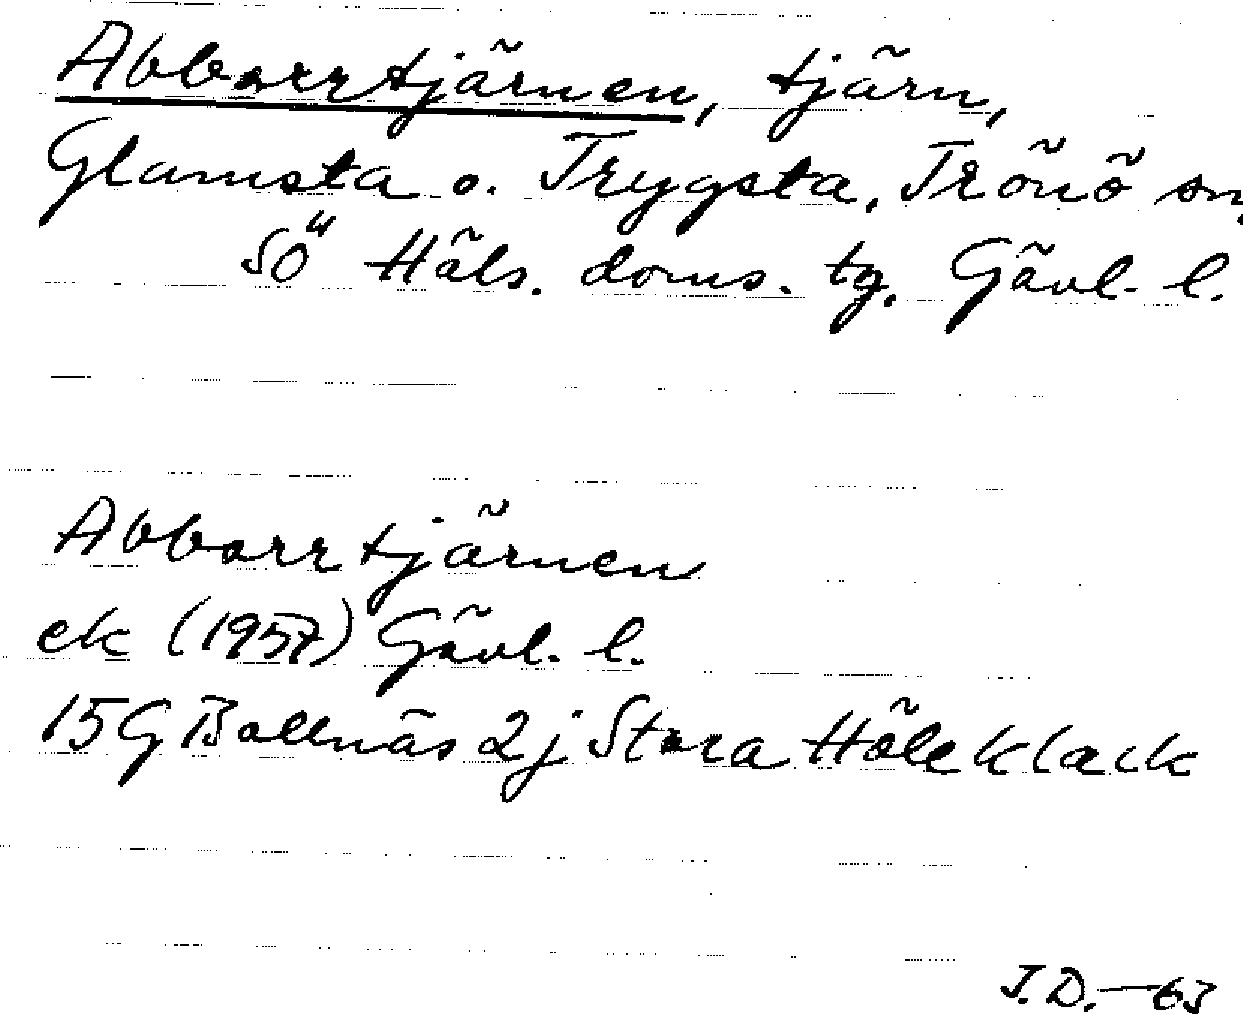 Abborrtjärnen, tjärn,
Glamsta o. Trygsta, Trönö sn,
SÖ Häls. doms. tg. Gävl. l.
Abborrtjärnen
ek (1957) Gävl. l.
15G Bollnäs 2j Stora Höleklack
J.D.—63